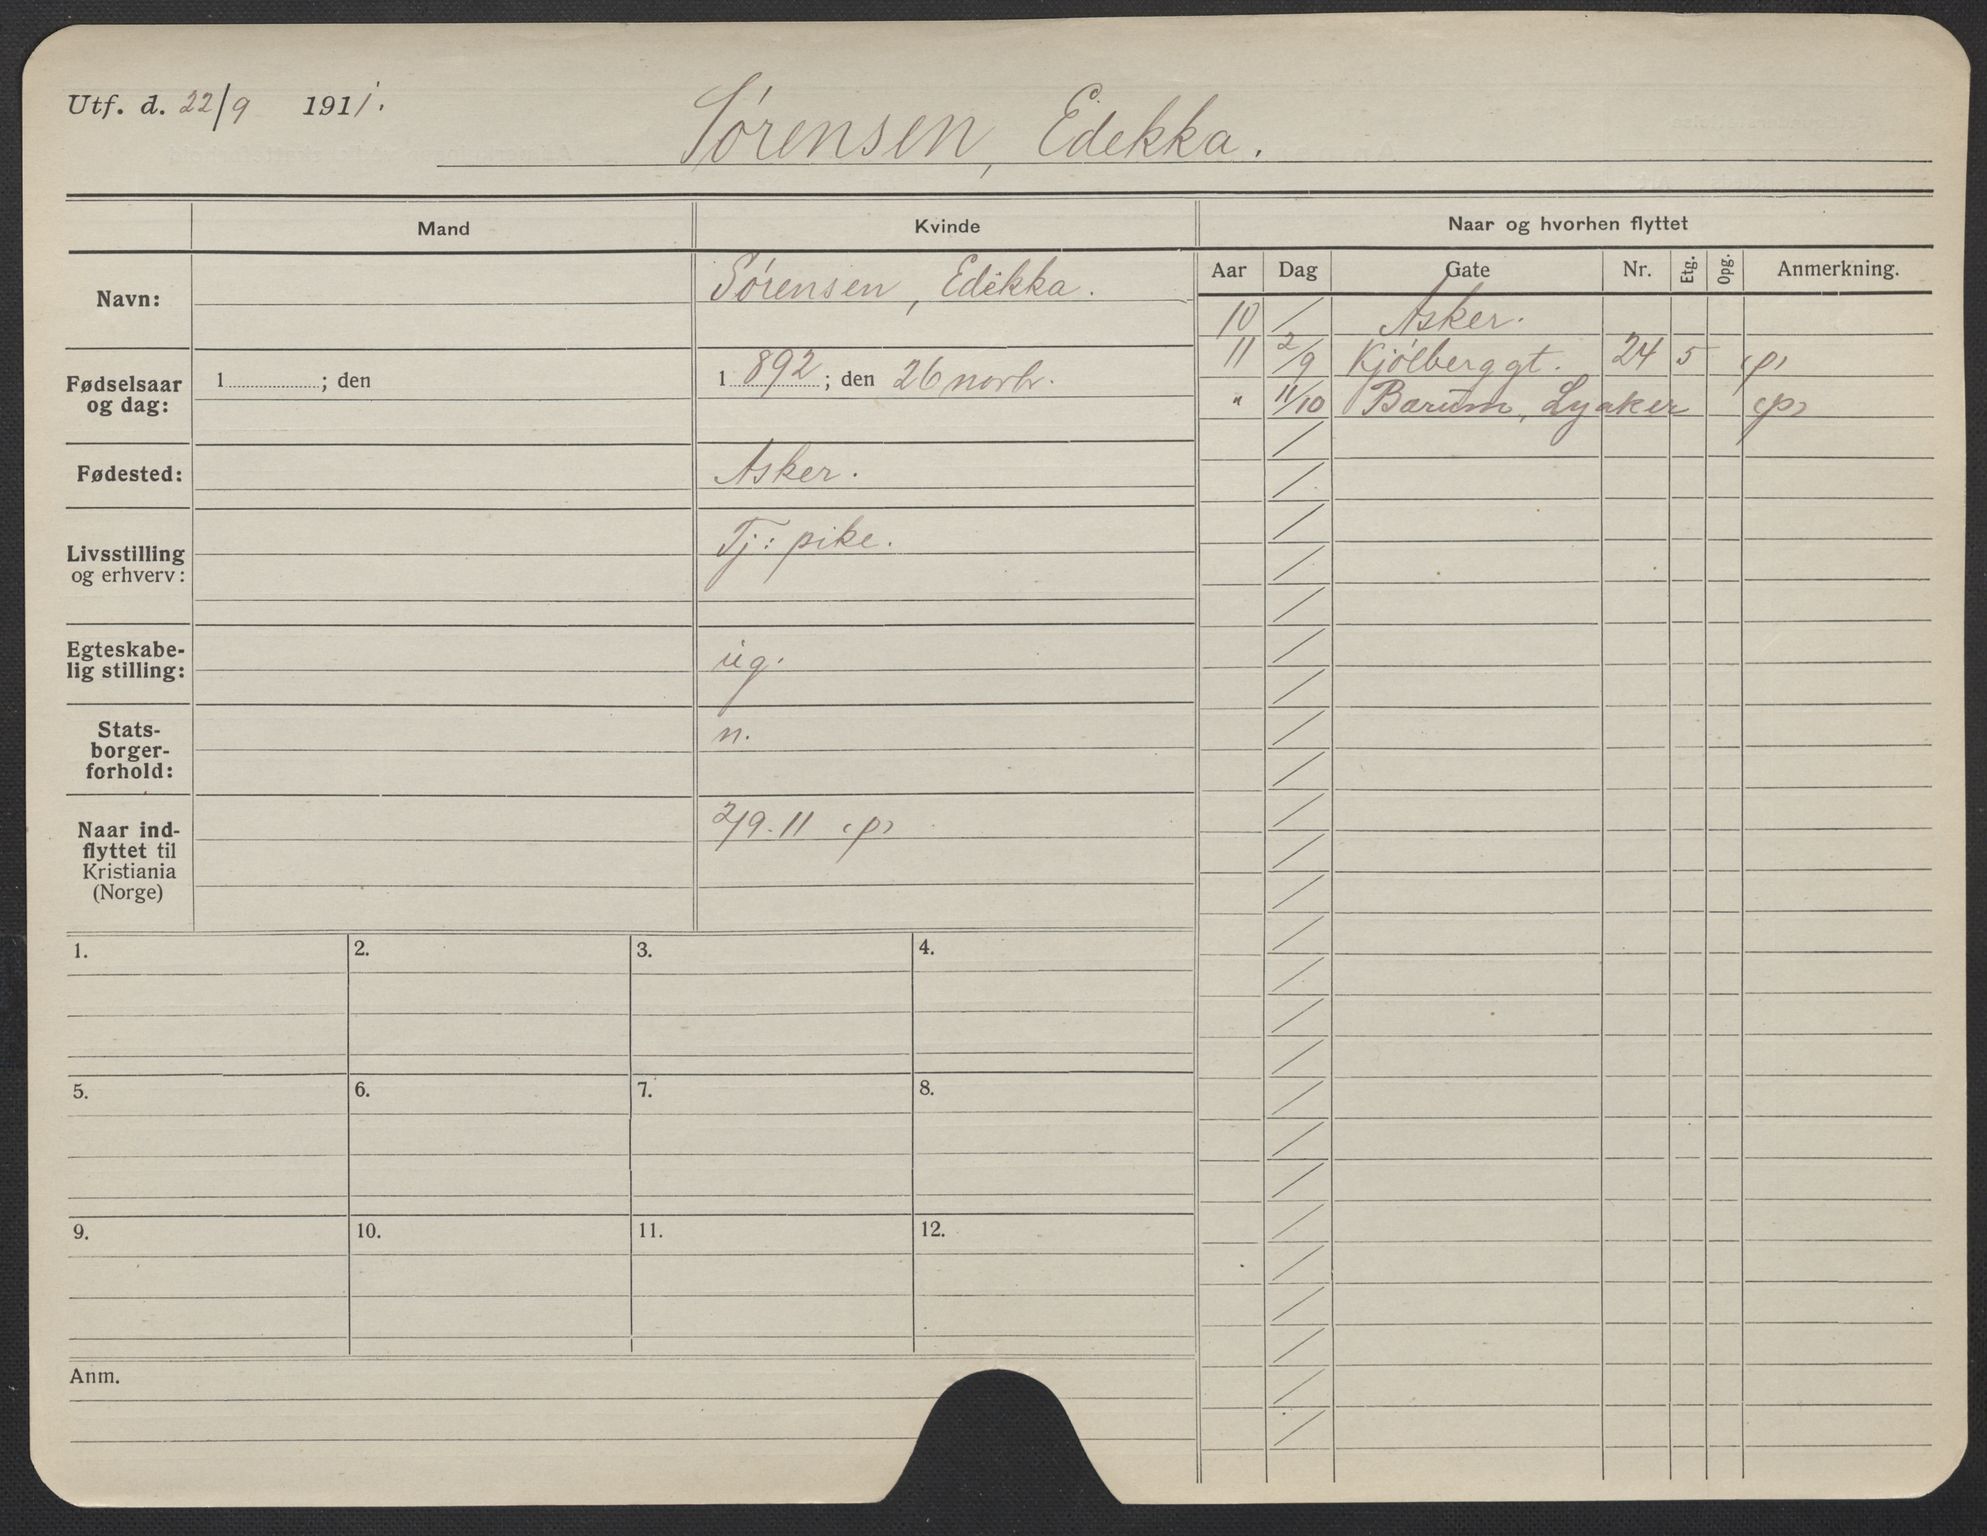 Utf. d. 22/9 1911.
Sørensen, Edekka.
Mand
Kvinde
Naar og hvorhen flyttet
Navn:
Sørensen, Edekka.
Fødselsaar og dag:
1 ; den
1 892 ; den 26 novbr.
Fødested:
Asker.
Livsstilling og erhverv:
Tj: pike.
Egteskabe-
lig stilling:
ug.
Stats-
borger-
forhold:
n.
Naar ind-
flyttet til
Kristiania
(Norge)
2/9. 11 (p)
Aar Dag Gate Nr. Etg. Opg. Anmerkning.
10 / Asker.
11 2/9 Kjølberggt. 24 5 (p)
" 11/10 Bærum, Lysaker (p)
1. 2. 3. 4.
5. 6. 7. 8.
9. 10. 11. 12.
Anm.